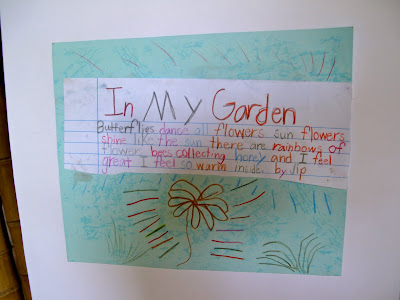 In My Garden
Butterflies dance all flowers sun flowers
shine like the sun there are rainbows of
flowers bees collecting honey and I feel
great I feel so warm inside. by Jip